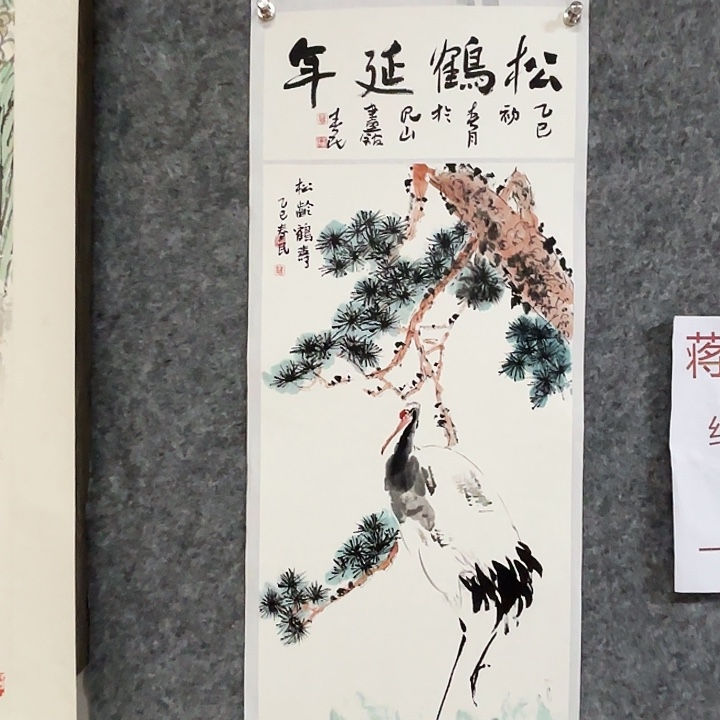 松鶴延年
乙巳
初
春月
於
山
春民
松齡鶴壽
乙巳春民
蒋
一